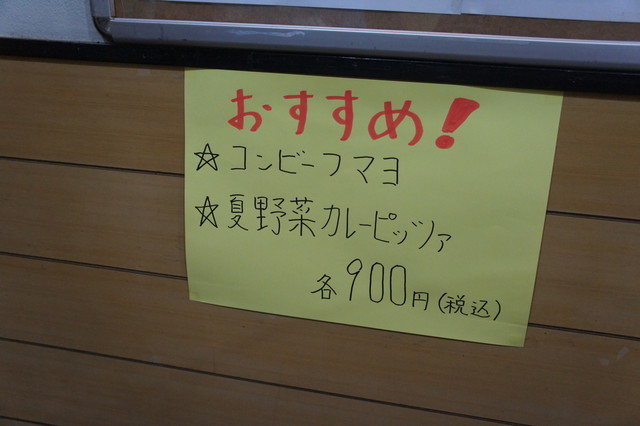 おすすめ!
☆コンビーフマヨ
☆夏野菜カレーピッツァ
各900円(税込)